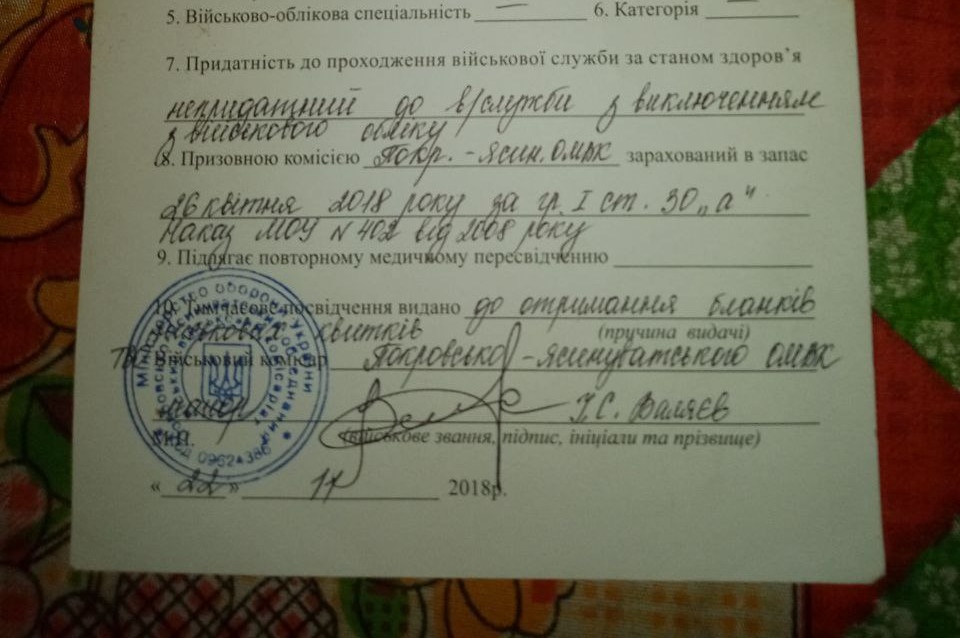 5. Військово-облікова спеціальність — 6. Категорія —
7. Придатність до проходження військової служби за станом здоров'я
непридатний до в/служби з виключенням
з військового обліку
8. Призовною комісією Покр.-Ясин. ОМВК зарахований в запас
26 квітня 2018 року за гр. I ст. 30 „а"
Наказ МОУ N 402 від 2008 року
9. Підлягає повторному медичному пересвідченню
10. Тимчасове посвідчення видано до отримання бланків
військових квитків
(причина видачі)
Військовий комісар Покровсько-Ясинуватського ОМВК
майор І.С. Валяєв
М.П. (військове звання, підпис, ініціали та прізвище)
«22» 2018р.
Міністерство оборони України